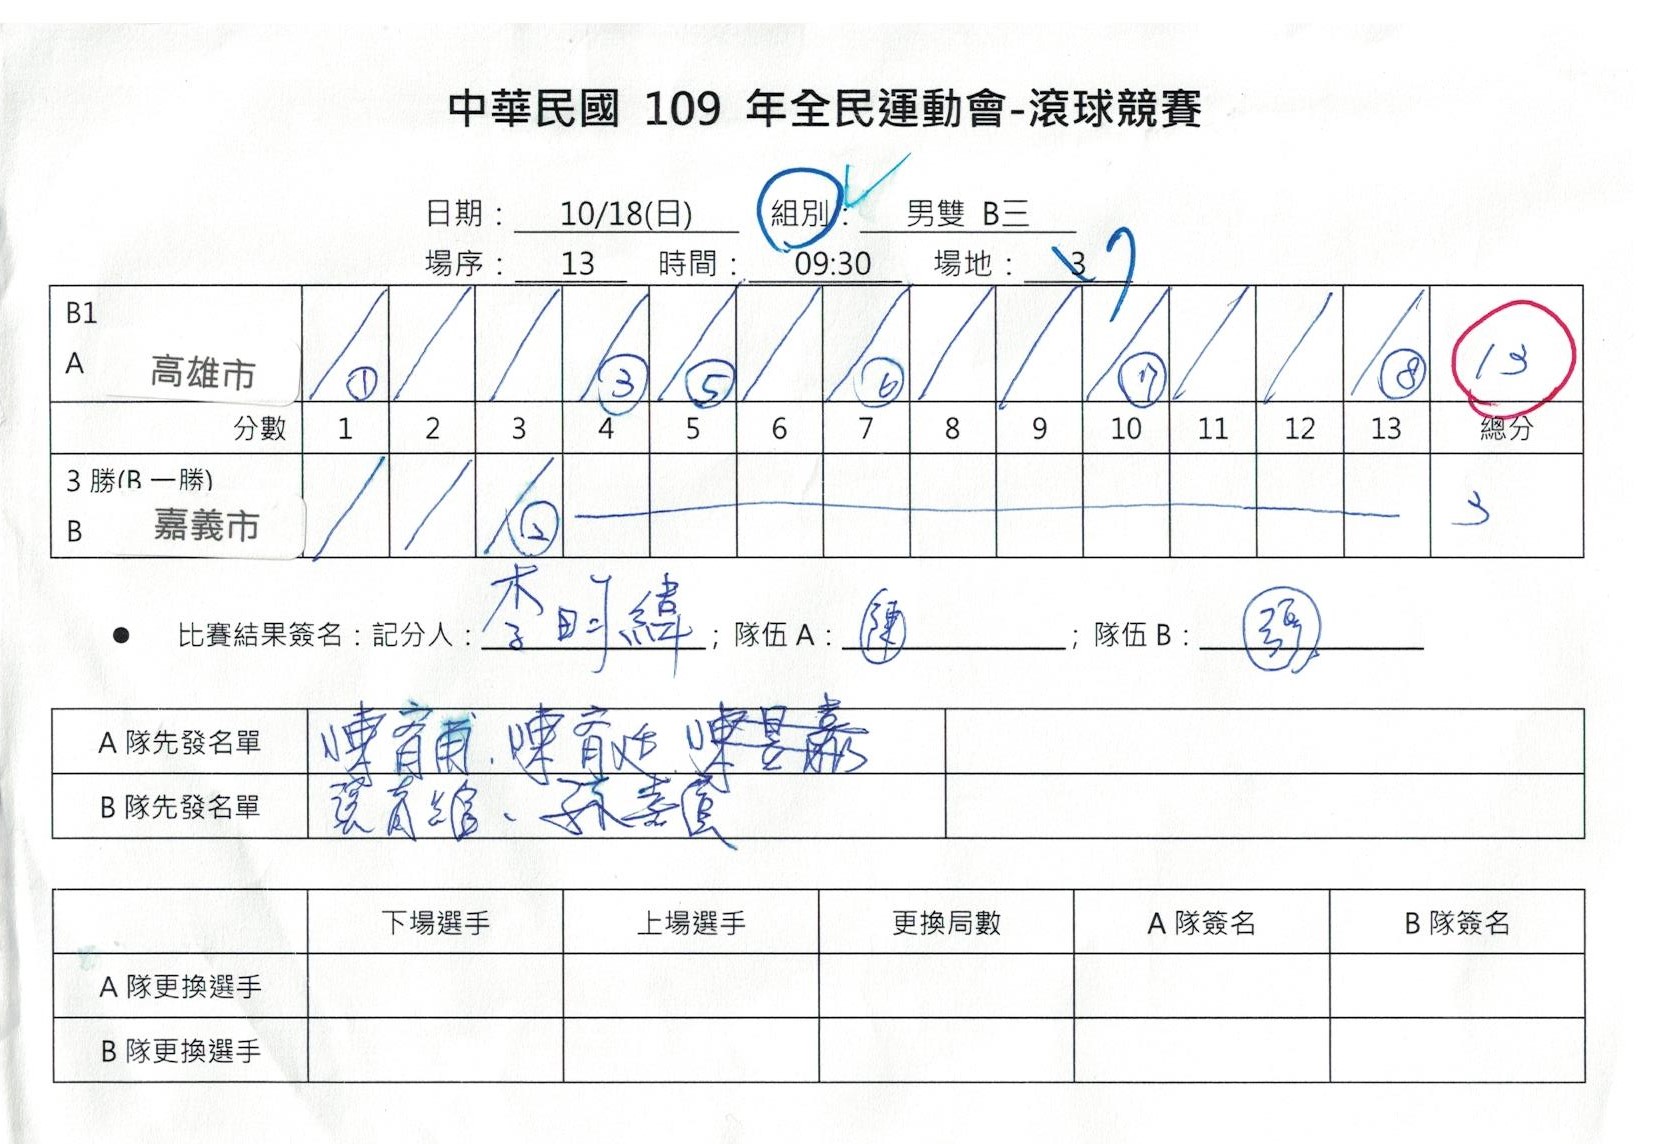 中華民國 109 年全民運動會-滾球競賽
日期： 10/18(日) 組別： 男雙 B三
場序： 13 時間： 09:30 場地： 3 7
B1
A 高雄市 ① ③ ⑤ ⑥ ⑦ ⑧ 13
分數 1 2 3 4 5 6 7 8 9 10 11 12 13 總分
3 勝(B 一勝)
B 嘉義市 ② 3
● 比賽結果簽名：記分人：李 緯；隊伍 A：陳；隊伍 B：張
A 隊先發名單 陳育甫、陳育 陳昱嘉
B 隊先發名單
下場選手 上場選手 更換局數 A 隊簽名 B 隊簽名
A 隊更換選手
B 隊更換選手